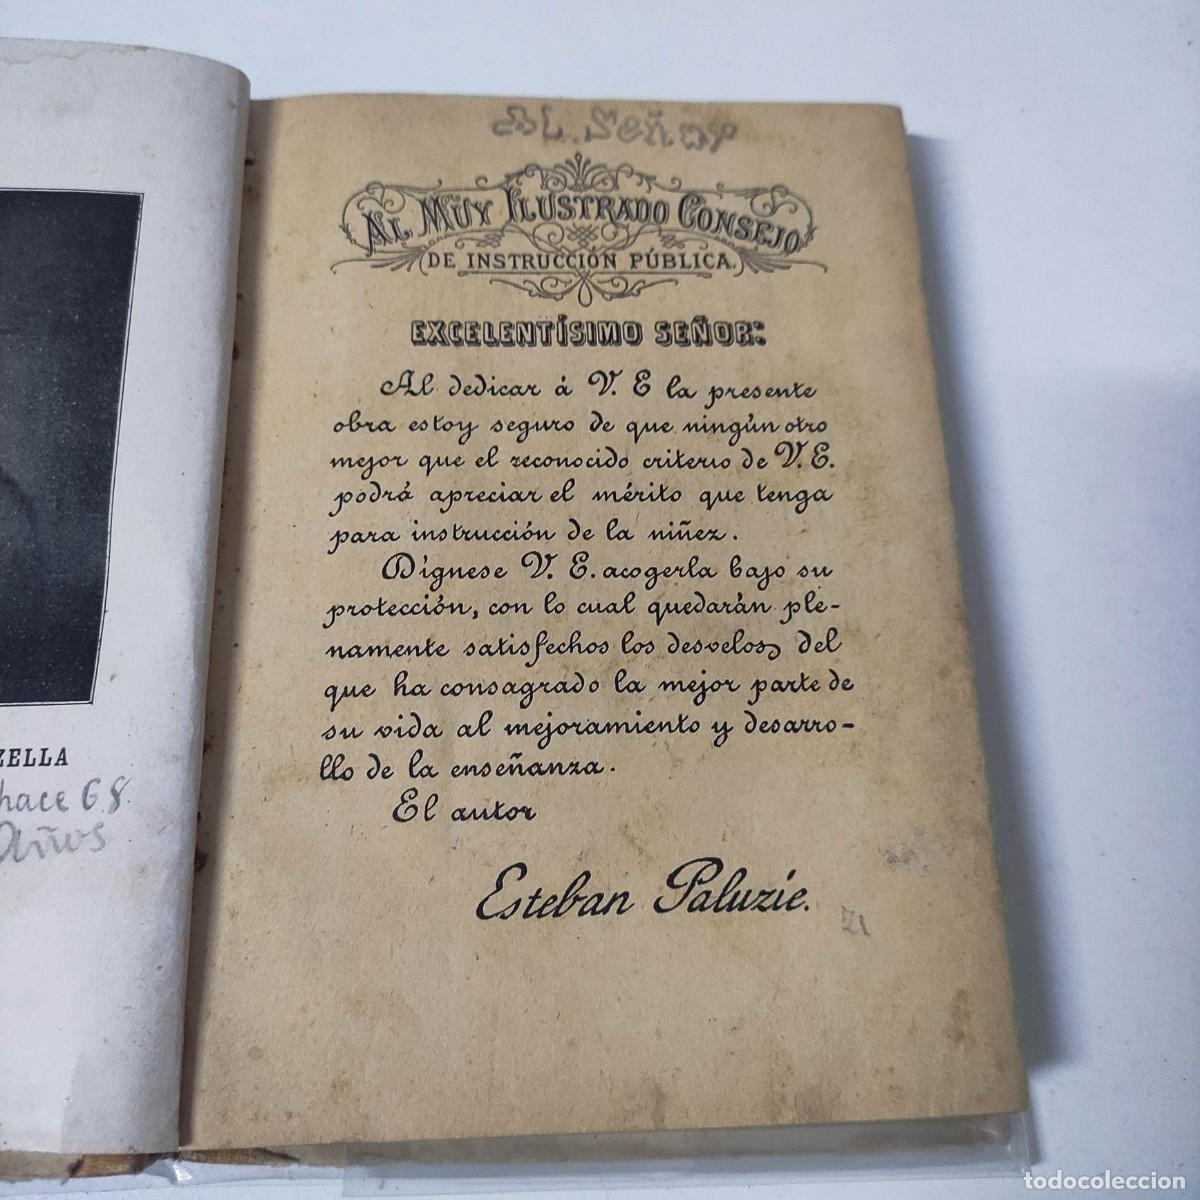 ZELLA
hace 68
Años
Al Señor
AL MUY ILUSTRADO CONSEJO
DE INSTRUCCIÓN PÚBLICA.
EXCELENTÍSIMO SEÑOR:
Al dedicar á V. E la presente
obra estoy seguro de que ningún otro
mejor que el reconocido criterio de V. E.
podrá apreciar el mérito que tenga
para instrucción de la niñez.
Dígnese V. E. acogerla bajo su
protección, con lo cual quedarán ple-
namente satisfechos los desvelos, del
que ha consagrado la mejor parte de
su vida al mejoramiento y desarro-
llo de la enseñanza.
El autor
Esteban Paluzie.
todocoleccion